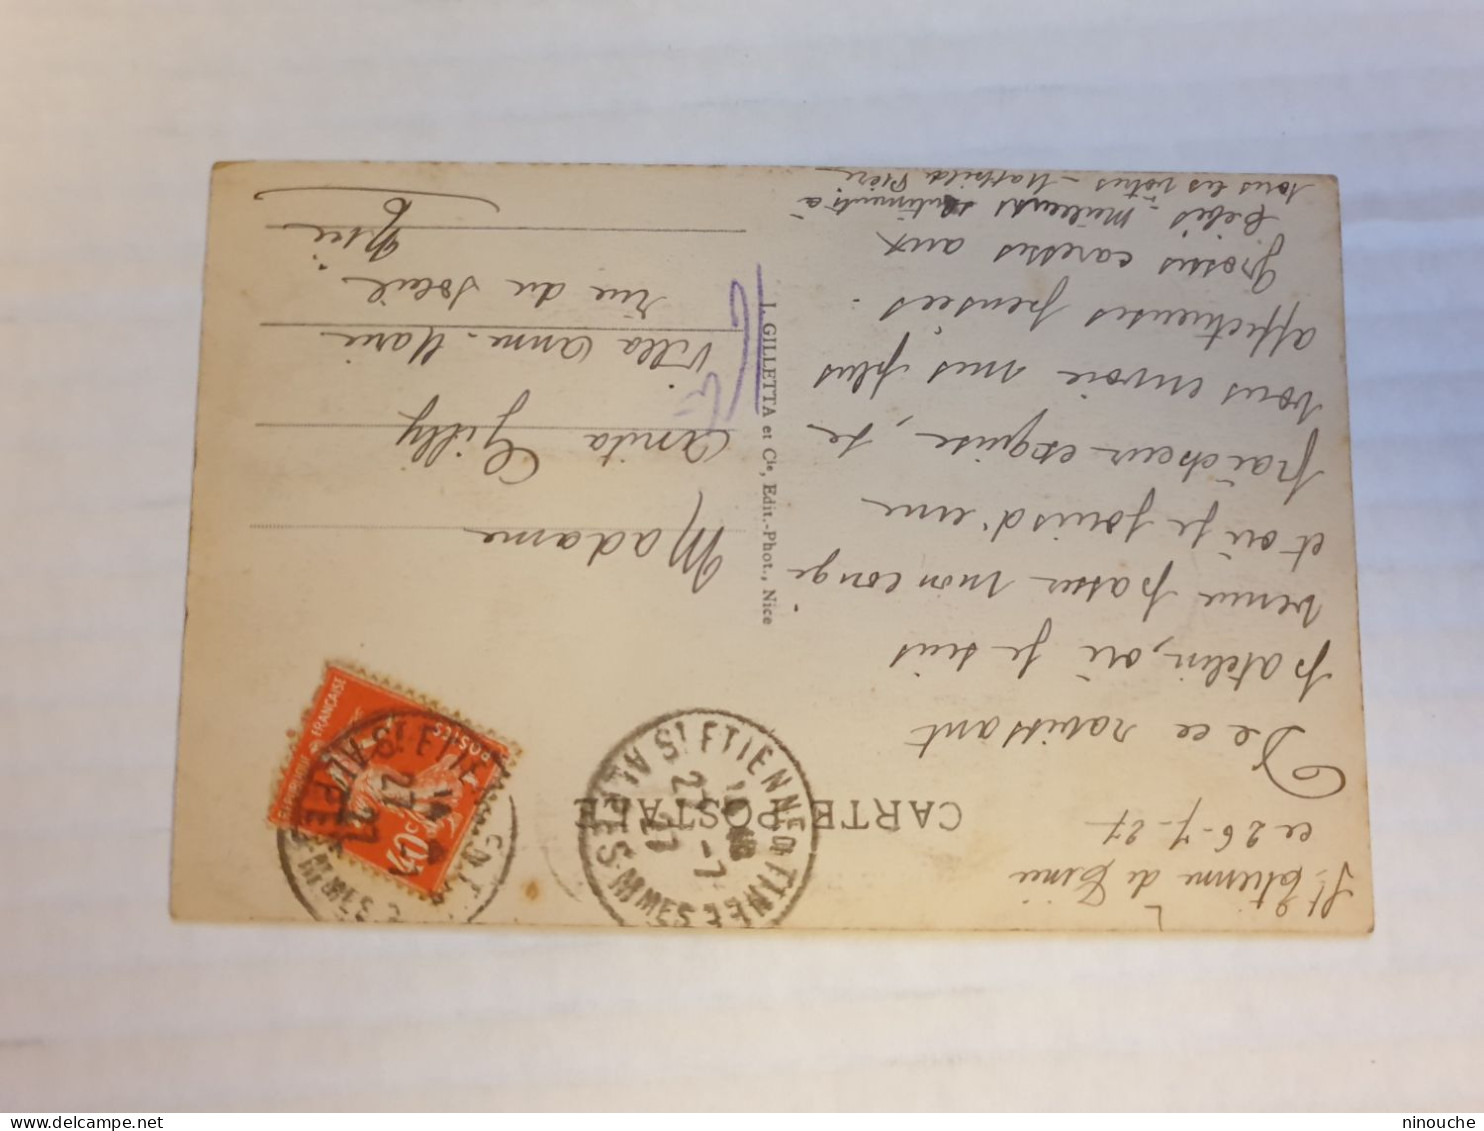 CARTE POSTALE
St Etienne de Tinée
ce 26-7-27
De ce ravissant
patelin, où je suis
venue passer mon congé
et où je jouis d'une
fraîcheur exquise, je
vous envoie mes plus
affectueuses pensées.
Grosses caresses aux
bébés - meilleurs sentiments à
tous les vôtres - Mathilde
L. GILLETTA et Cie, Edit.-Phot., Nice
Madame
Anita Gilly
Villa Anne-Marie
rue du Soleil
Nice
ST ETIENNE DE TINEE
14
27-7
27
ALPES-MMES
POSTES
40c
FRANÇAISE
ninouche